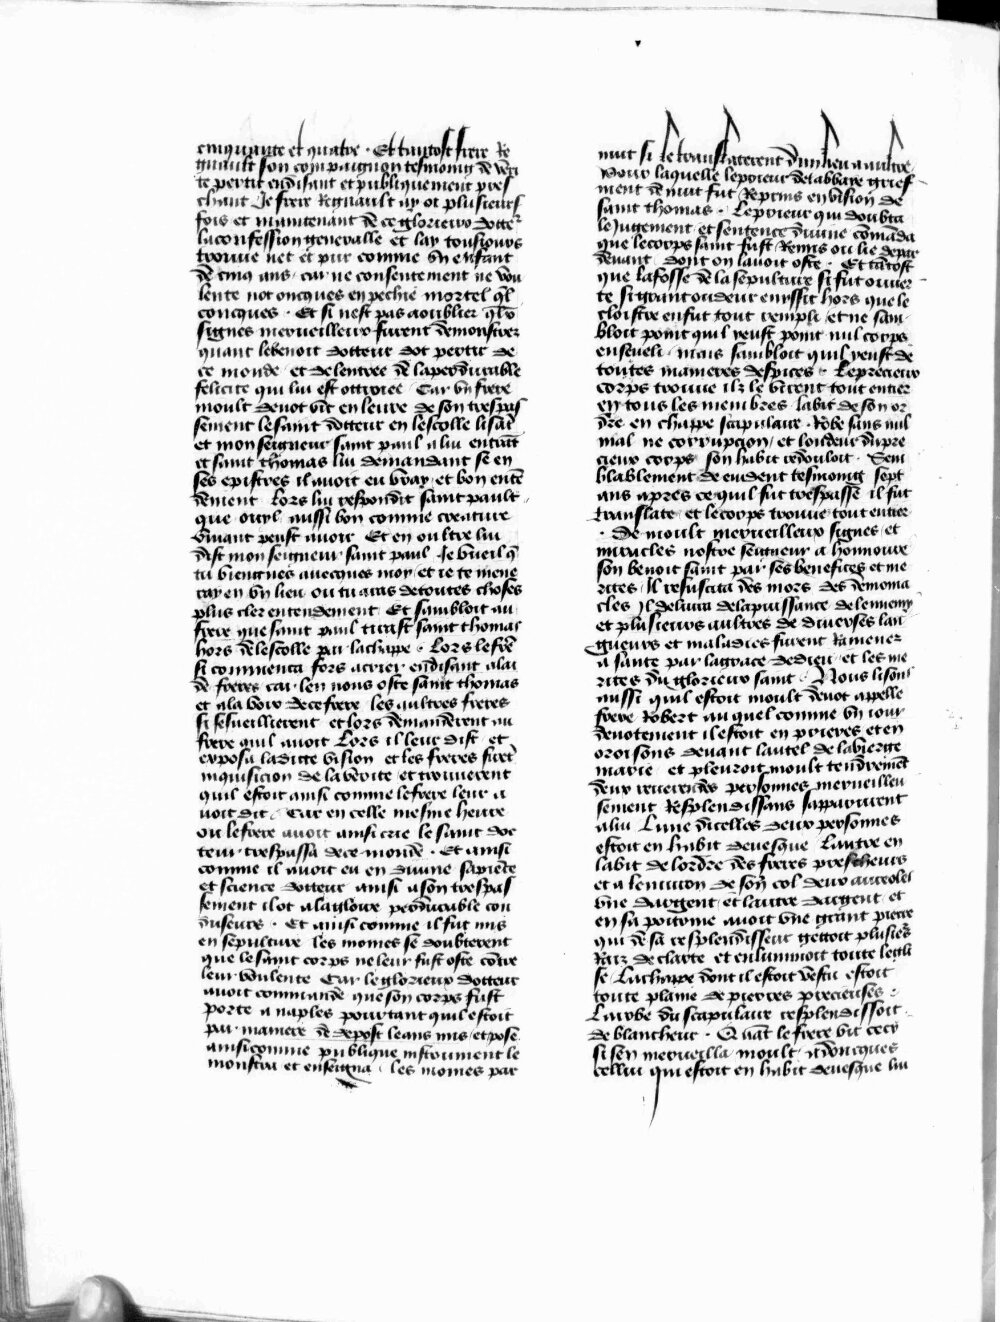 cinquante et quatre · Et tantost frere Re
gnault son compaignon tesmoing de veri
te perut en disant et publiquement pres
chant Je frere Regnault ay ot plusieurs
fois et maintenant de ce glorieux docter
la confession generalle et lay tousiours
trouue net et pur comme vn enfant
de cinq ans / car ne consentement ne vou
lente not oncques en pechie mortel ql
concques · Et si nest pas a oublier qlx
signes merueilleux furent demonstrez
quant le benoit docteur dot partir de
ce monde / et de lentree de la perdurable
felicite qui lui est ottroiee / Car vn frere
moult deuot vit en leure de son trespas
sement le saint docteur en lescolle lisant
et monseigneur saint paul a lui entrant
et saint thomas lui demandant se en
ses epistres il auoit eu vray et bon enten
dement / Lors lui respondit saint pault
que ouyl aussi bon comme creature
viuant peust auoir Et en oultre lui
dist mon seigneur saint paul Je vueil q
tu viengnes auecques moy et ie te mene
ray en vn lieu ou tu auras de toutes choses
plus cler entendement / Et sambloit au
frere que saint paul tirast saint thomas
hors de lescolle par la chappe · Lors le fre
si commenca fors a crier en disant alai
de freres car len nous oste saint thomas
et a la voix de ce frere les aultres freres
si sesueillierent et lors demanderent au
frere quil auoit Lors il leur dist et
exposa la ditte vision et les freres firent
inquisicion de la verite et trouuerent
quil estoit ainsi comme le frere leur a
uoit dit / Car en celle mesme heure
ou le frere auoit ainsi crie le saint doc
teur trespassa de ce monde · Et ainsi
comme il auoit eu en diuine sapience
et science docteur ainsi a son trespas
sement il ot a la gloire perdurable con
duiseurs · Et ainsi comme il fut mis
en sepulture les moines se doubterent
que le saint corps ne leur fust oste contre
leur voulente Car le glorieux docteur
auoit commande que son corps fust
porte a naples pourtant quil estoit
par maniere de depost leans mis et pose
ainsi comme publique instrument le
monstra et enseigna / les moines par
nuit si le translaterent dun lieu a aultre
Pour laquelle le prieur de labbaye grief
ment de nuit fut Reprins en vision de
saint thomas · Le prieur qui doubta
le Jugement et sentence diuine comanda
que le corps saint fust Remis ou lieu depar
deuant dont on lauoit oste · Et tantost
que la fosse de la sepulture si fut ouuer
te si grant oudeur en yssit hors que le
cloistre en fut tout rempli et ne sam
bloit point quil y eust point nul corps
enseueli / mais sambloit quil y eust de
toutes manieres despices · Le precieux
corps trouue ilz le virent tout entier
en tous les membres labit de son or
dre en chappe scapulaire · Robe sans nul
mal ne corrupcion / et loudeur du pre
cieux corps son habit redouloit · Sem
blablement de euident tesmoing sept
ans apres ce quil fut trespasse il fut
translate et le corps trouue tout entier
· De moult merueilleux signes et
miracles nostre seigneur a honnoure
son benoit saint par ses benefices et me
rites / Il resuscita des mors des demonia
cles Il deliura de la puissance de lennemy
et plusieurs aultres de diuerses lan
gueurs et maladies furent Ramenez
a sante par la grace de dieu et les me
rites du glorieux saint · Nous lisons
aussi quil estoit moult deuot appelle
frere Robert au quel comme vn iour
deuotement il estoit en prieres et en
oroisons deuant lautel de la vierge
marie et pleuroit moult tendrement
deux reuerendes personnes merueilleu
sement Resplendissans sapparurent
a lui / Lune dicelles deux personnes
estoit en habit deuesque / Lautre en
labit de lordre des freres prescheurs
et a lenuiron de son col deux aureoles
vne dargent et lautre dargent et
en sa poitrine auoit vne grant pierre
qui de sa resplendisseur gettoit plusieurs
Raiz de clarte et enluminoit toute legli
se / La chappe dont il estoit vestu estoit
toute plaine de pierres precieuses ·
La robe du scapulaire resplendissoit
de blancheur · Quant le frere vit cecy
si sen merueilla moult / adoncques
cellui qui estoit en habit deuesque lui